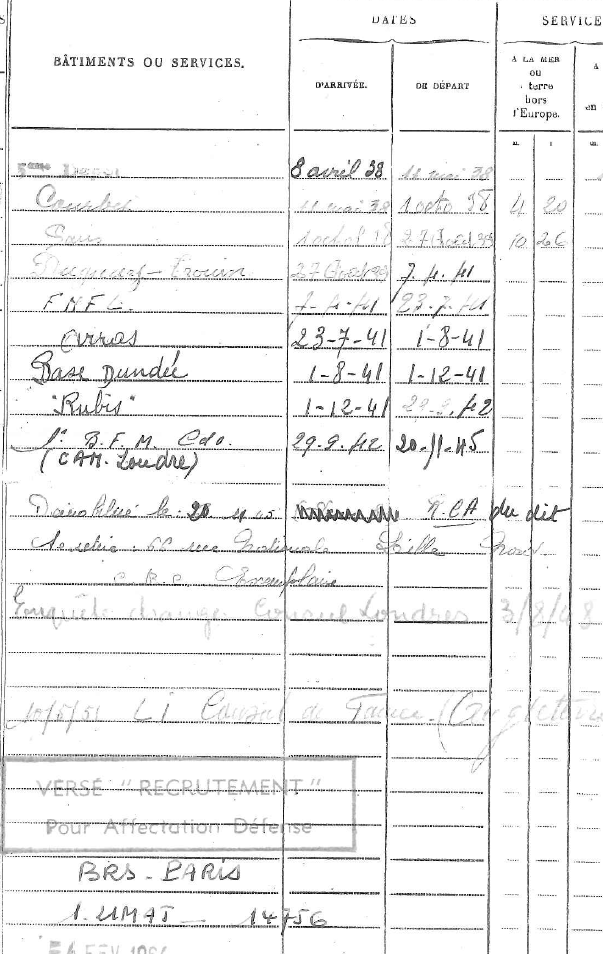 DATES SERVICE
BÂTIMENTS OU SERVICES. D'ARRIVÉE. DE DÉPART A LA MER ou terre hors l'Europe. A en
5ème Dépôt 8 avril 38 11 mai 38
Courbet 11 mai 38 1 octo 38 4 20
Paris 1 octo 38 27 Août 39 10 26
Duguay-Trouin 27 Août 39 7.4.41
F.N.F.L. 7-4-41 23.7.41
Arras 23-7-41 1-8-41
Base Dundée 1-8-41 1-12-41
"Rubis" 1-12-41 29.9.42
1er B.F.M. Cdo. 29.9.42 20-11-45
(CAM. Londre)
Démobilisé le 20 11 45 R.CA du dit
Se retire: 66 rue Nationale Lille Nord
Exemplaire
Enquête étrange Consul Londres 3/8/48
10/5/51 LI Consul de France (Angleterre
VERSÉ "RECRUTEMENT"
Pour Affectation Défense
BRS-PARIS
1. UMAT - 14756
FEV